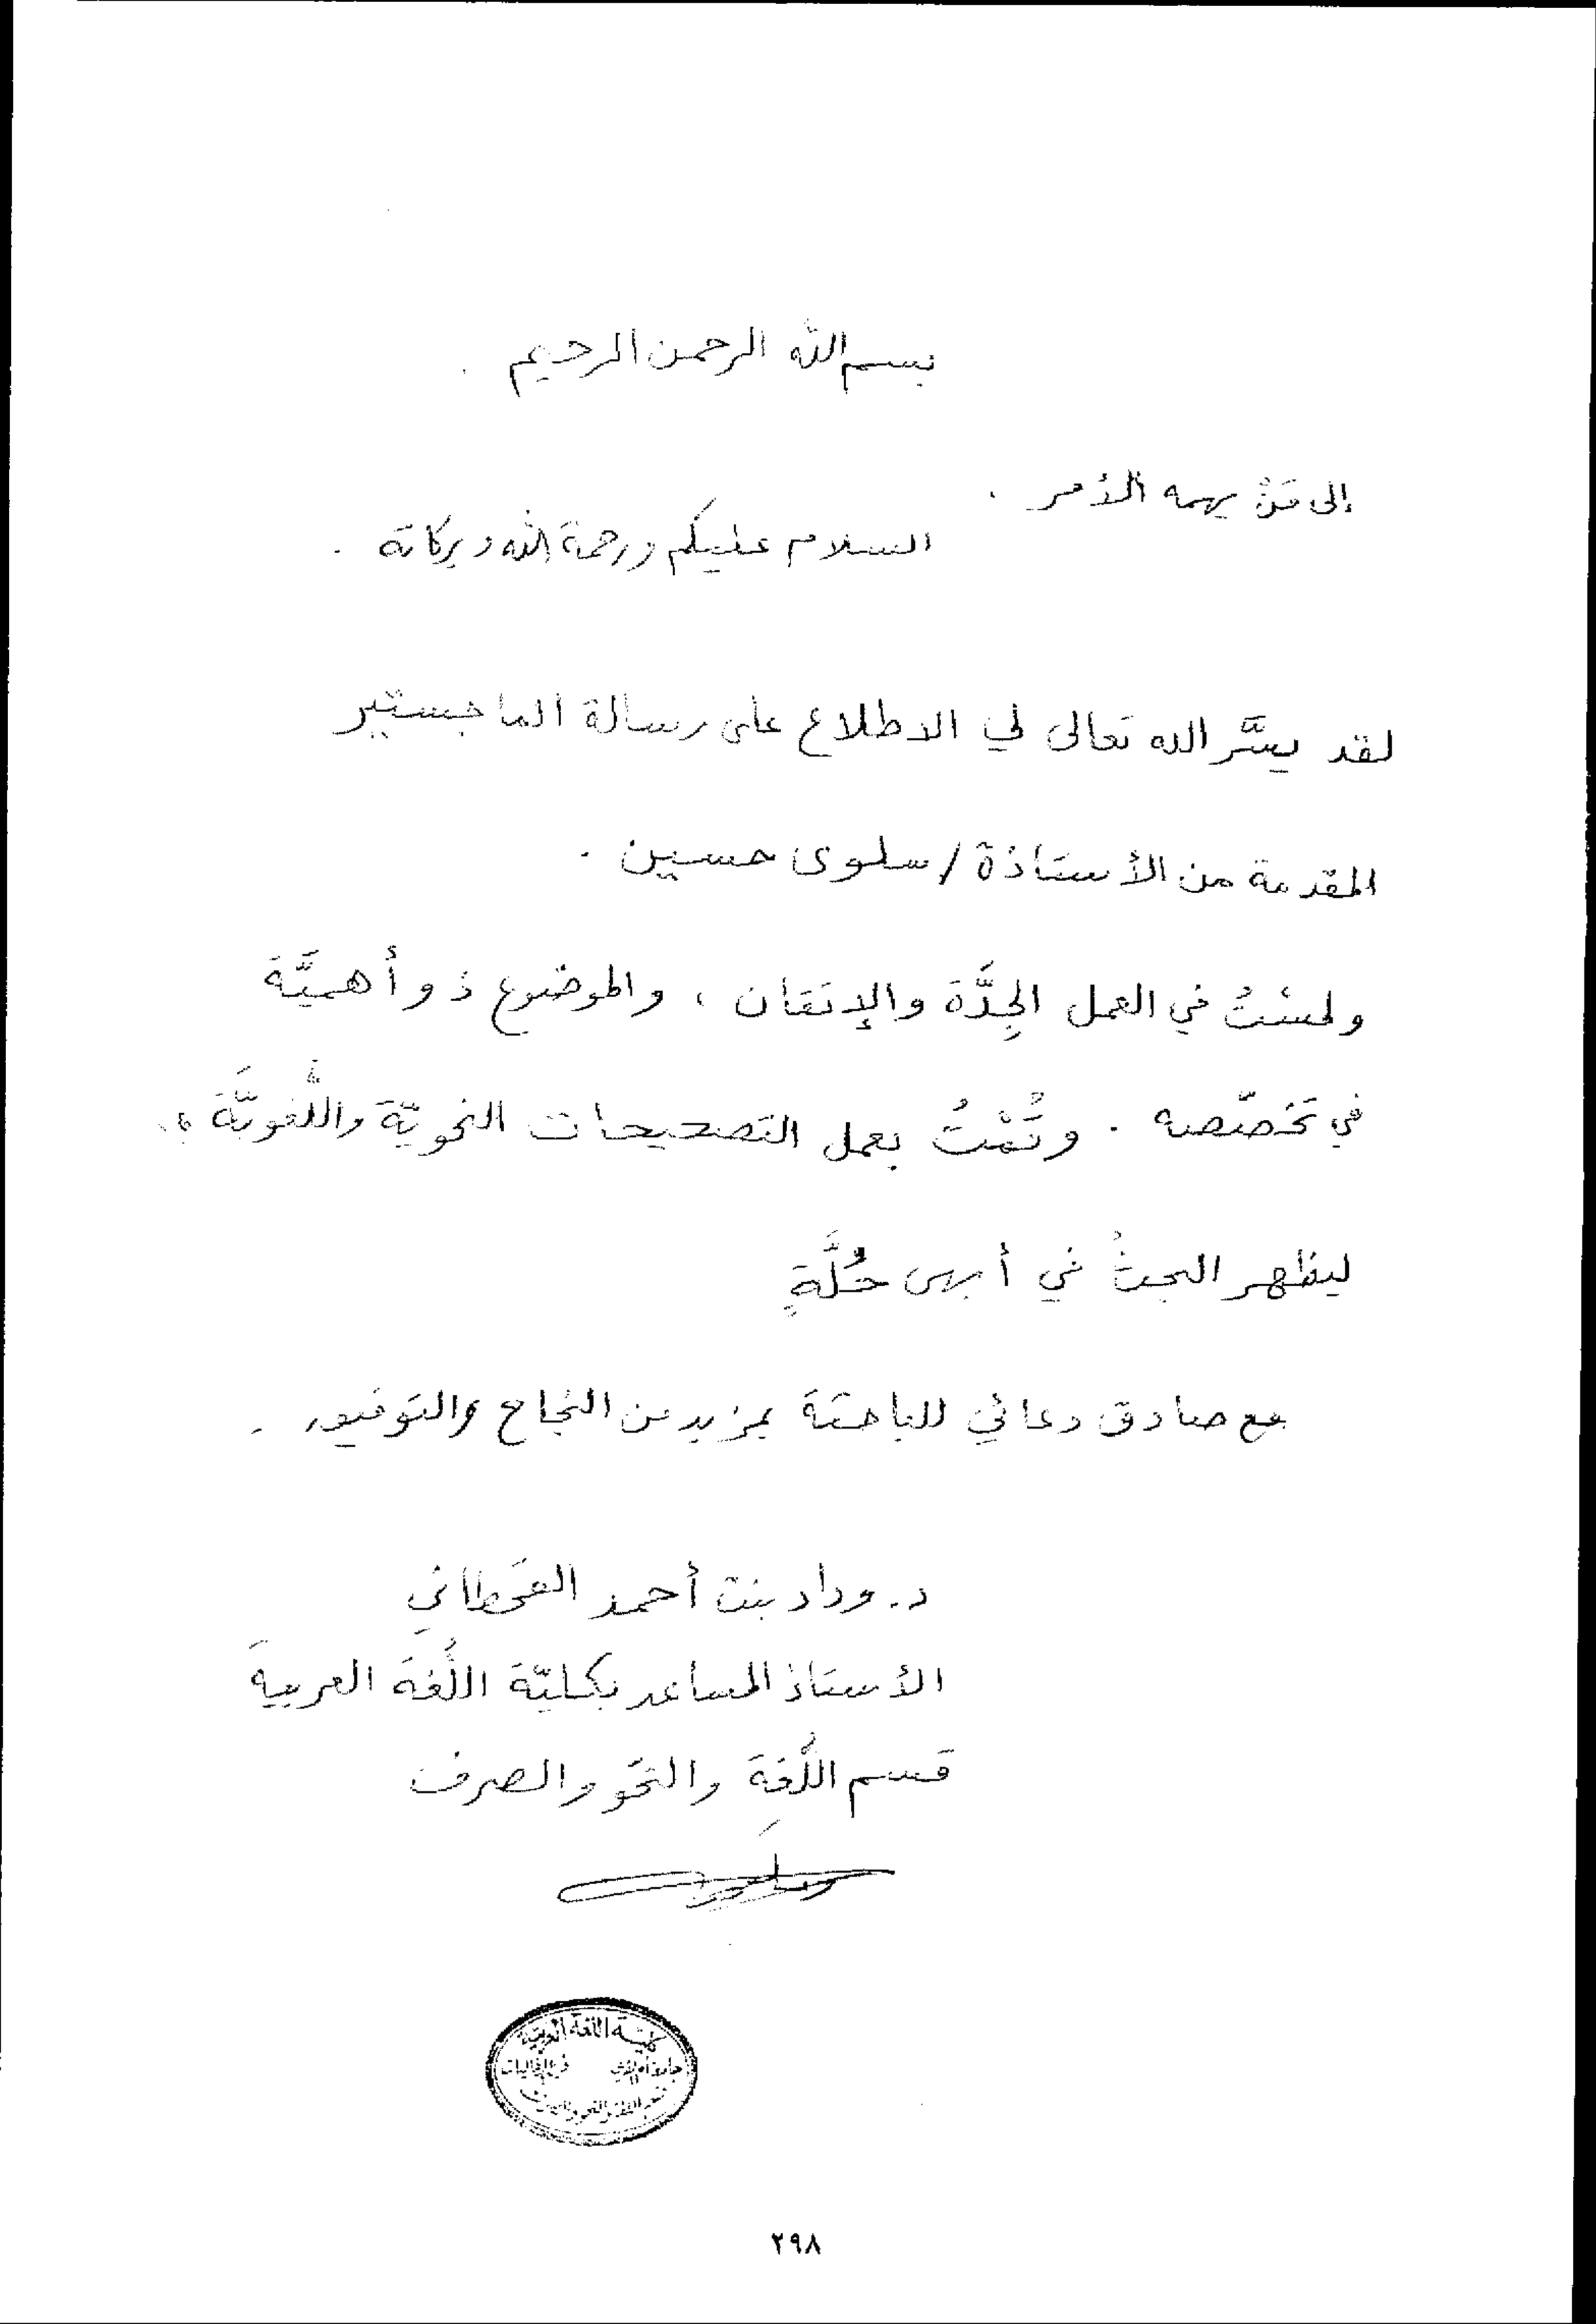 بسم الله الرحمن الرحيم .
إلى مَنْ يهمه الأمر .
السلام عليكم ورحمة الله وبركاته .
لقد يسَّر الله تعالى لي الاطلاع على رسالة الماجستير
المقدمة من الأستاذة / سلوى حسين .
ولمسْتُ في العمل الجِدَّة والإتقان ، والموضوع ذو أهميَّة
في تخصّصه . وقُمْتُ بعمل التصحيحات النحويّة واللُّغويَّة ؛
ليظهر البحثُ في أبهى حُلَّةٍ
مع صادق دعائي للباحثة بمزيد من النجاح والتوفيق .
د. وداد بنت أحمد القحطاني
الأستاذ المساعد بكليّة اللُّغة العربية
قسم اللُّغة والنحو والصرف
كلية اللغة العربية
جامعة أم القرى
قسم اللغة والنحو والصرف
٢٩٨